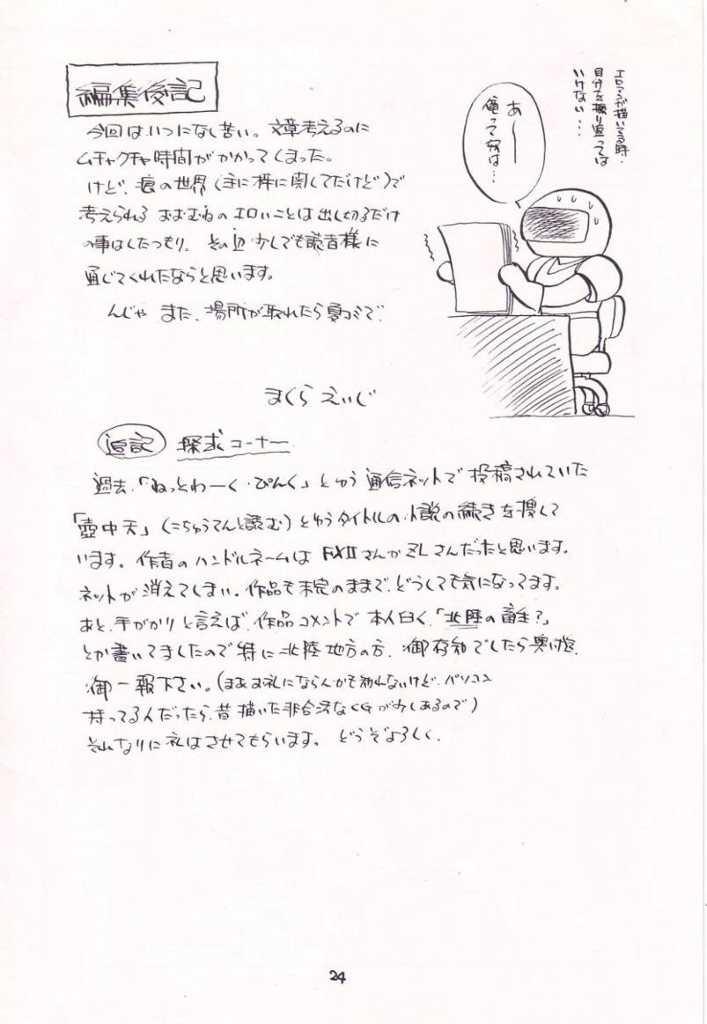 編集後記
今回はいつになし苦い。文章考えるのに
ムチャクチャ時間がかかってしまった。
けど、痕の世界(主に梓に関してだけど)で
考えられるおおむねのエロいことは出し切るだけ
の事はしたつもり。その辺少しでも読者様に
通じてくれたならと思います。
んじゃ また、場所が取れたら夏コミで。
まくら えいじ
エロマンガ描いてる時、
自分を振り返っては
いけない…
あ〜
俺って奴は…
追記 探求コーナー
過去、「ねっとわーく・ぴんく」とゆう通信ネットで投稿されていた
「壺中天」(こちゅうてんと読む)とゆうタイトルの小説の続きを捜して
います。作者のハンドルネームは FXIIさんかZLさんだったと思います。
ネットが消えてしまい、作品も未完のままで、どうしても気になってます。
あと、手がかりと言えば、作品コメントで本人曰く、「北陸の 生?」
とか書いてましたので特に北陸地方の方、御存知でしたら
御一報下さい。(まあお礼にならんかも知れないけど、パソコン
持ってるんだったら、昔描いた非合法なCGが少しあるので)
それなりに礼はさせてもらいます。どうぞよろしく。
24